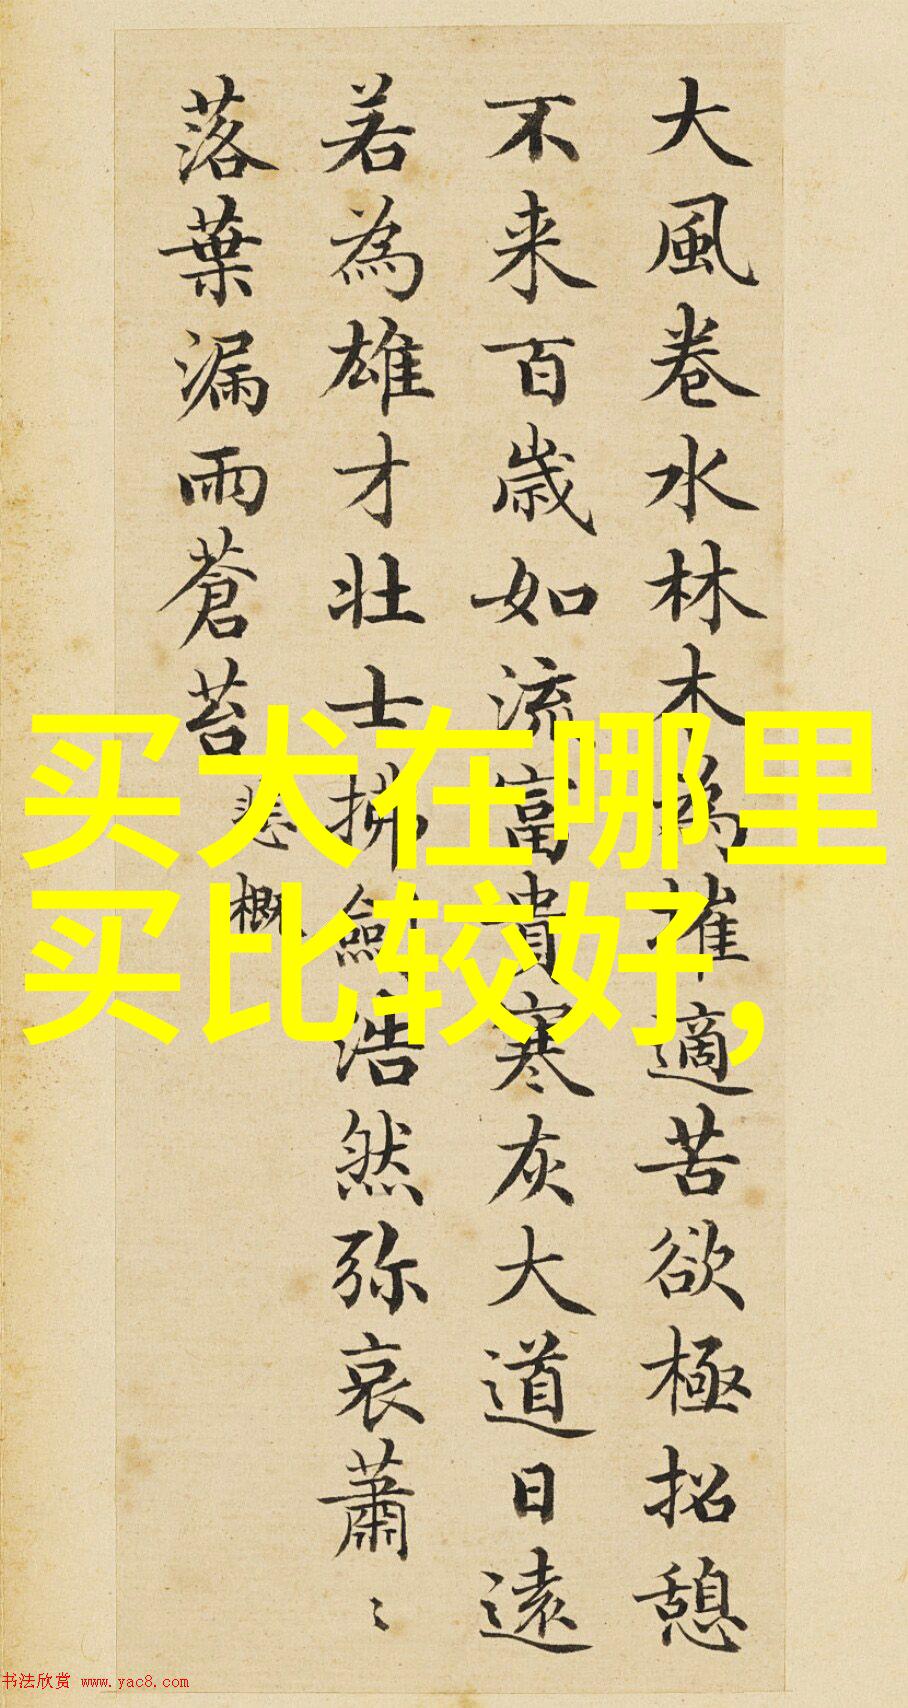 大風卷水林木為摧適苦欲極招憩
不来百歳如流富貴寒灰大道日遠
若為雄才壮士拂劒浩然弥哀蕭〻
落葉漏雨蒼苔
悲槪
买犬在哪里
买比较好,
书法欣赏 www.yac8.com